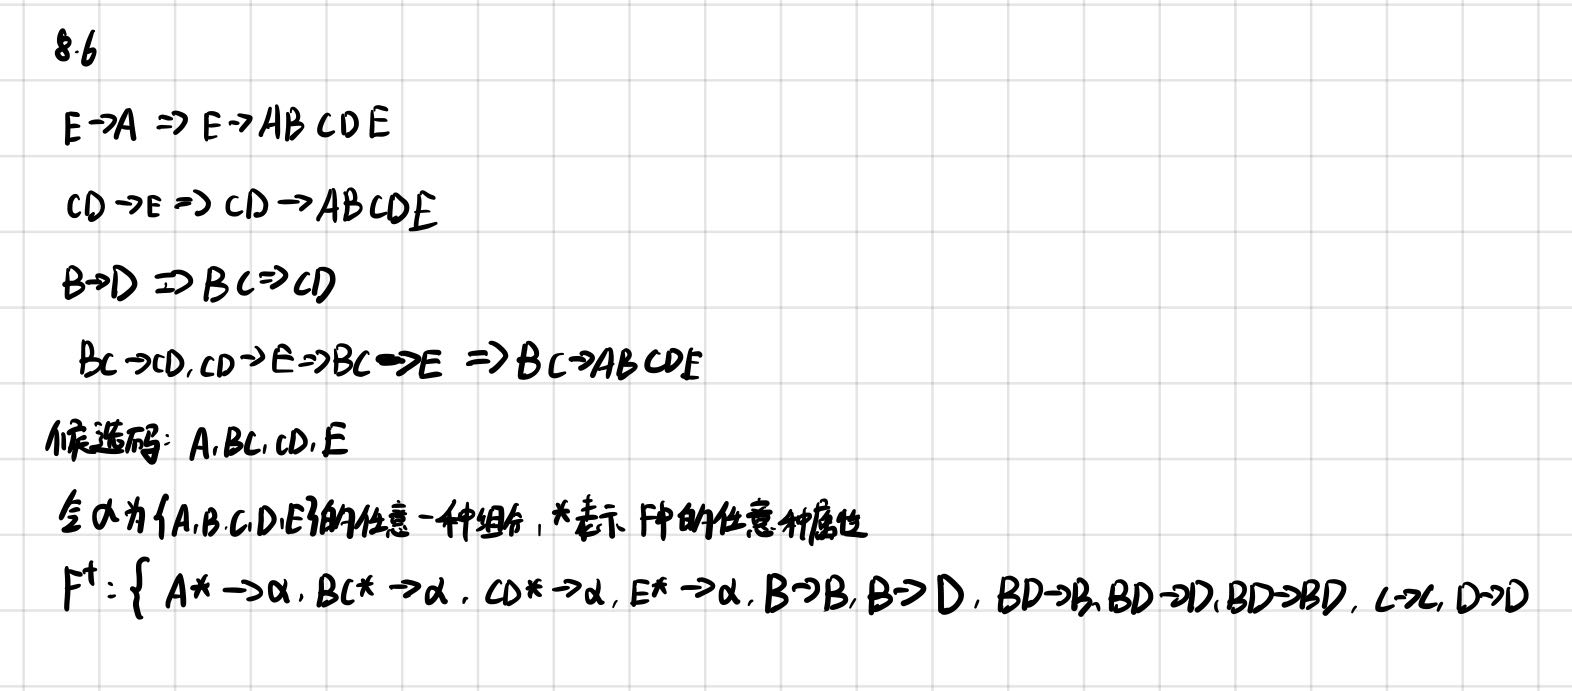 8.6
E→A ⇒ E→ABCDE
CD→E ⇒ CD→ABCDE
B→D ⇒ BC⇒CD
BC→CD, CD→E⇒BC→E ⇒ BC→ABCDE
候选码: A, BC, CD, E
令α为{A,B,C,D,E}的任意一种组合,*表示F中的任意种属性
F⁺: { A*→α, BC*→α, CD*→α, E*→α, B→B, B→D, BD→B, BD→D, BD→BD, C→C, D→D